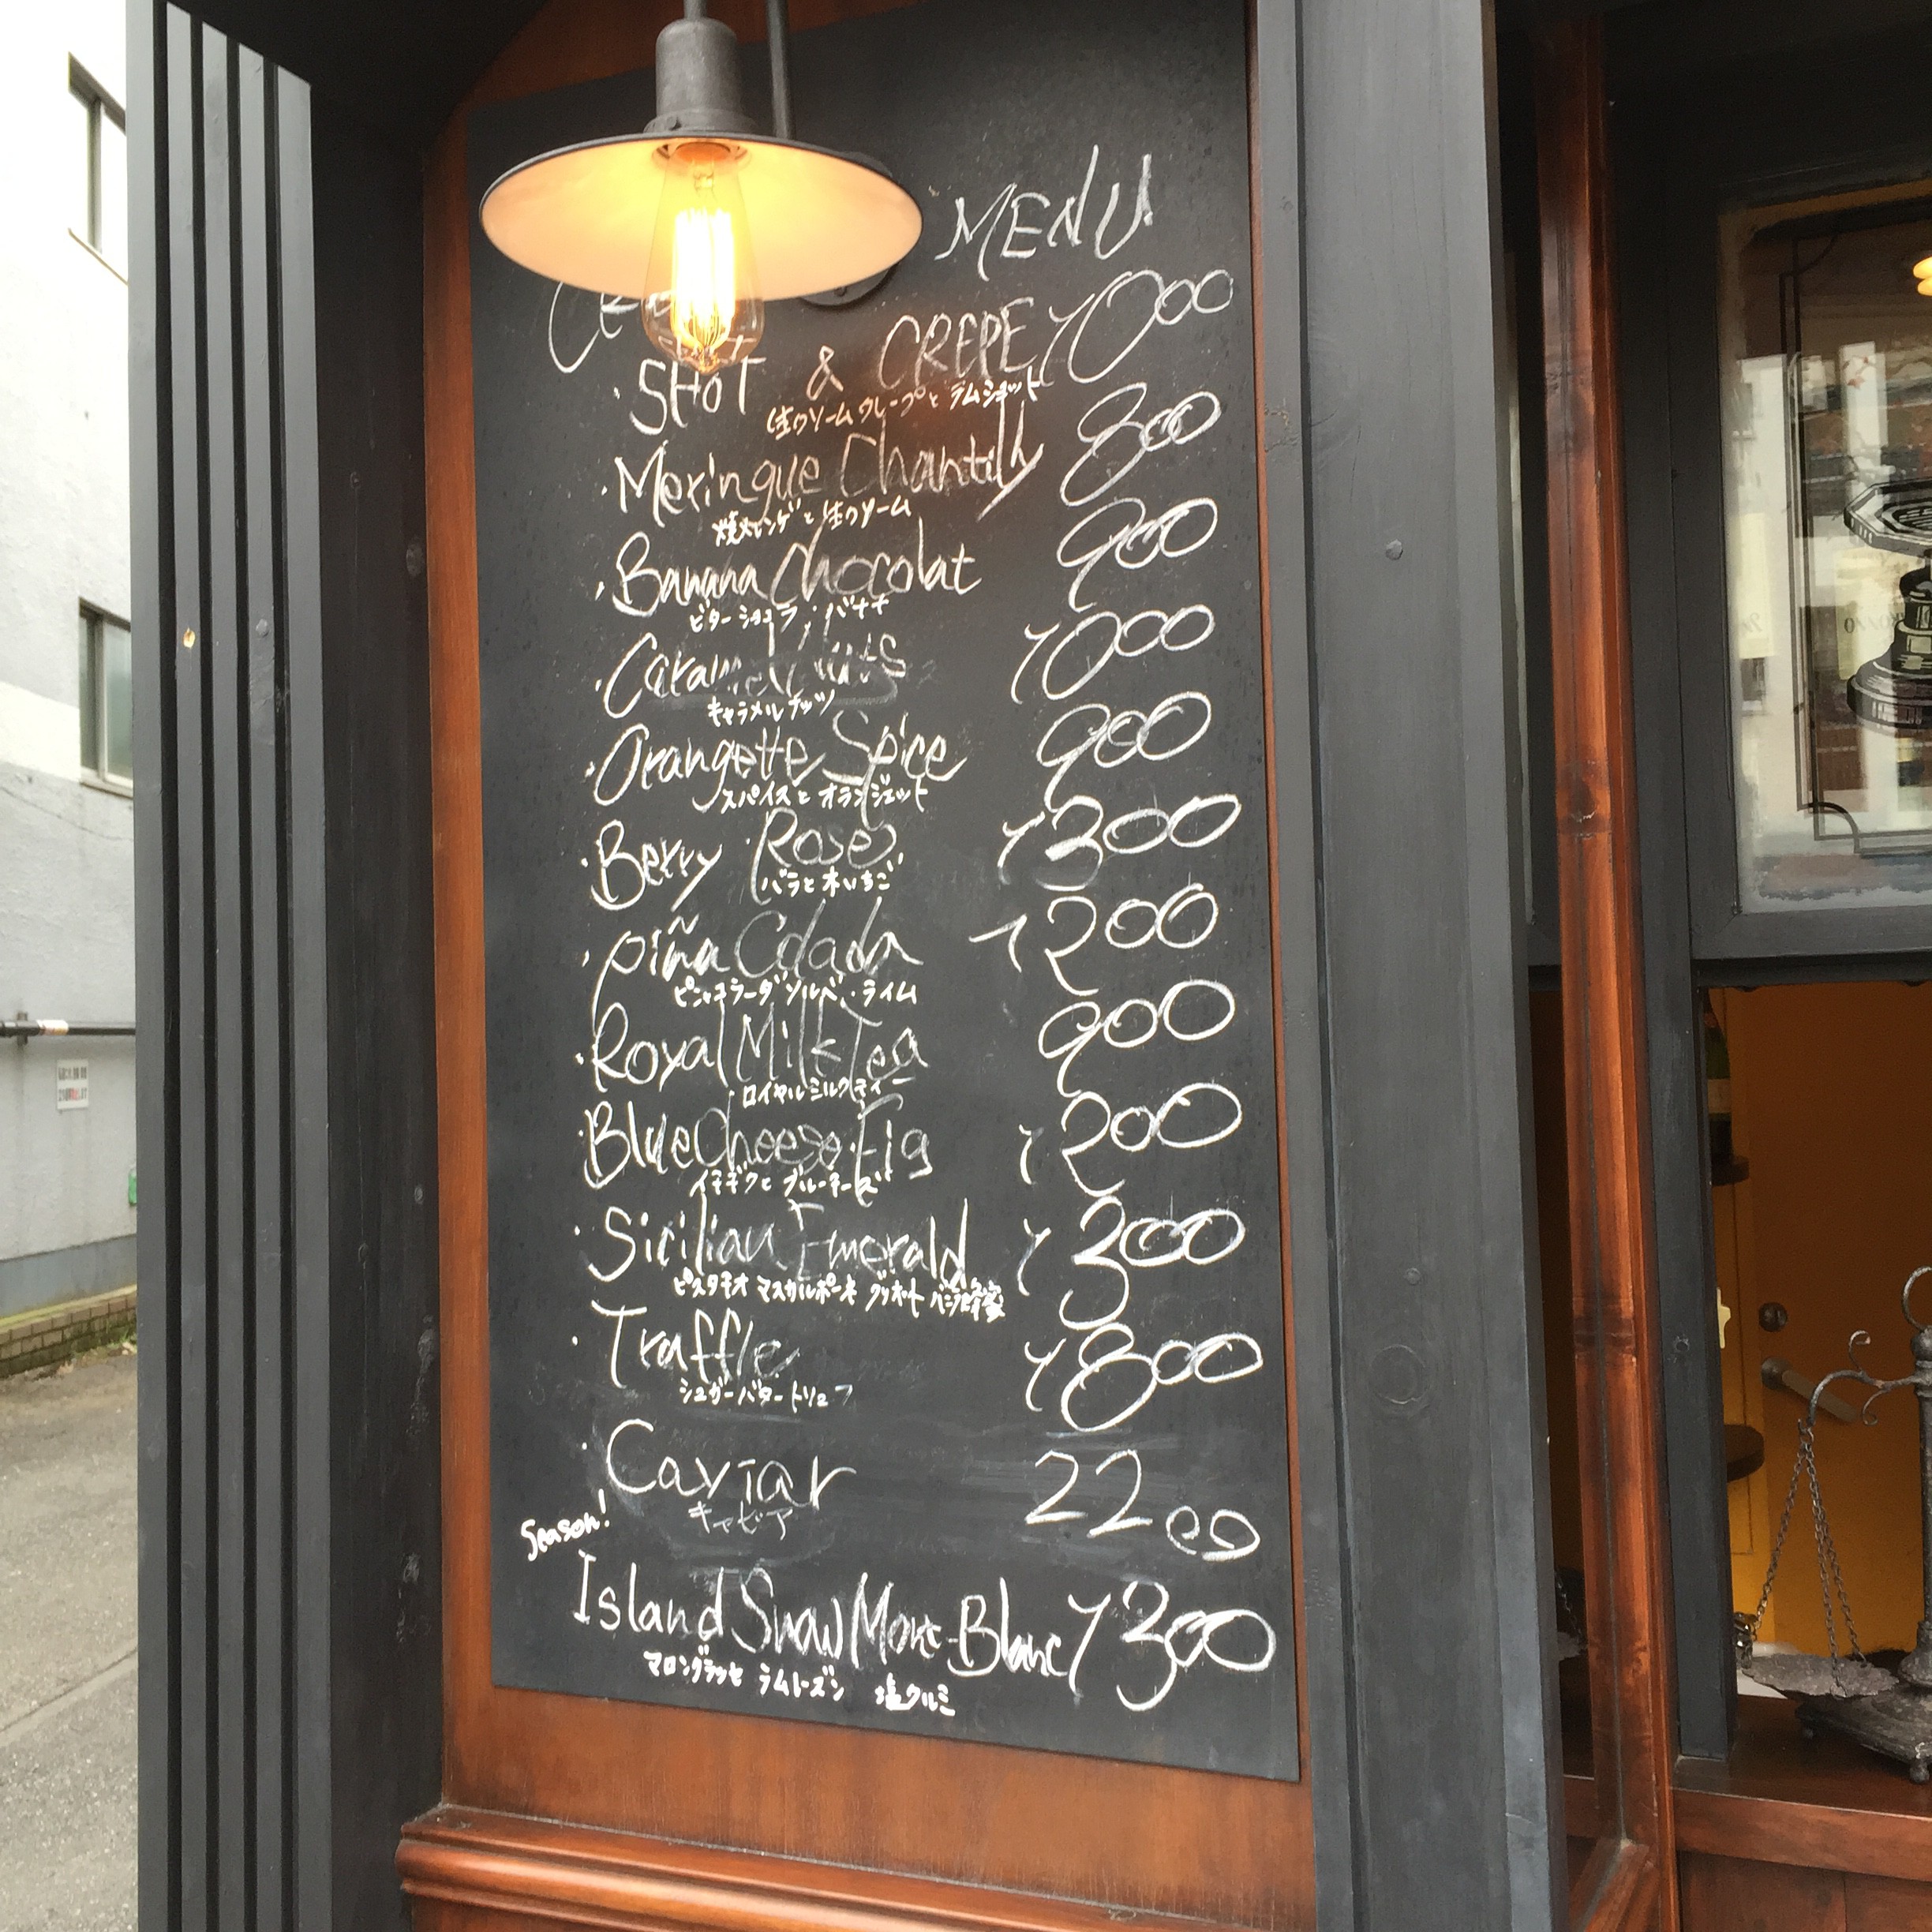 MENU
SHOT & CREPE 1000
生クリームクレープと ラムショット
・Meringue Chantilly 800
焼メレンゲと生クリーム
・Banana Chocolat 900
ビターショコラ・バナナ
・Caramel Nuts 1000
キャラメルナッツ
・Orangette Spice 900
スパイスと オランジェット
・Berry Roses 1300
バラと木いちご
・piña Colada 1200
ピニャコラーダソルベ・ライム
・Royal Milk Tea 900
ロイヤルミルクティー
・Blue Cheese・Fig 1200
イチヂクと ブルーチーズ
・Sicilian Emerald 1300
ピスタチオ マスカルポーネ グリオット
・Truffle 1800
シュガーバタートリュフ
・Caviar 2200
キャビア
Season!
Island Snow Mont-Blanc 1300
マロングラッセ ラムレーズン 塩クルミ